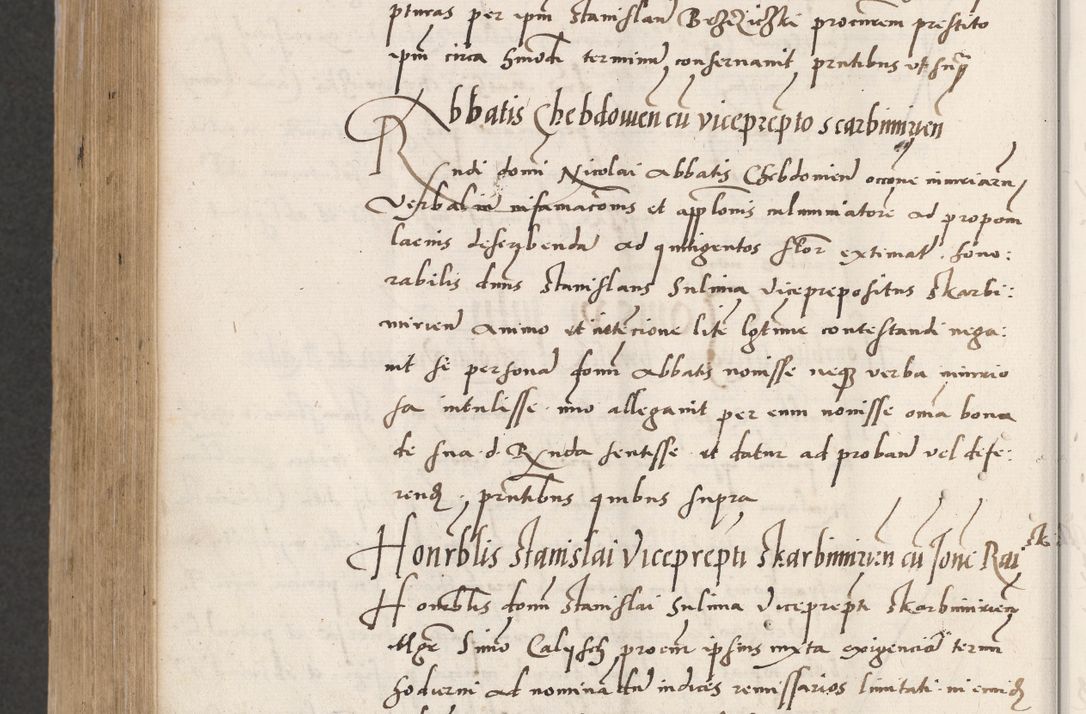 pturas per ipm Stanislau Brzezichki procurem prestito
ipm circa hmodi terminu conservavit prntibus ut supra
Abbatis Chebdowien cu viceprepto scarbimirien
Rndi domi Nicolai Abbatis Chebdomien occone iniuriaru
verbaliu infamacois et applonis calumniatore ad propom
laevis describenda ad quingentos flor extimat. hono:
rabilis duns Stanislaus Sulima viceprepositus Skarbi:
mirien animo et intecione lite lgtime contestandi nega:
vit se persona domi Abbatis novisse neq verba iniurio
sa intulisse. imo allegavit per eum novisse oma bona
de sua d Rnda sensisse. et datur ad proband vel defe:
rend. prntibus quibus supra
Honrblis Stanislai Viceprepti Skarbimirien cu Ione Rai
Honrblis domi Stanislai Sulima Viceprepti Skarbimirien
Mgr Simo procem ipsius iuxta exigencia termi
hodierni ad nomina dni iudicis remissarios limitati